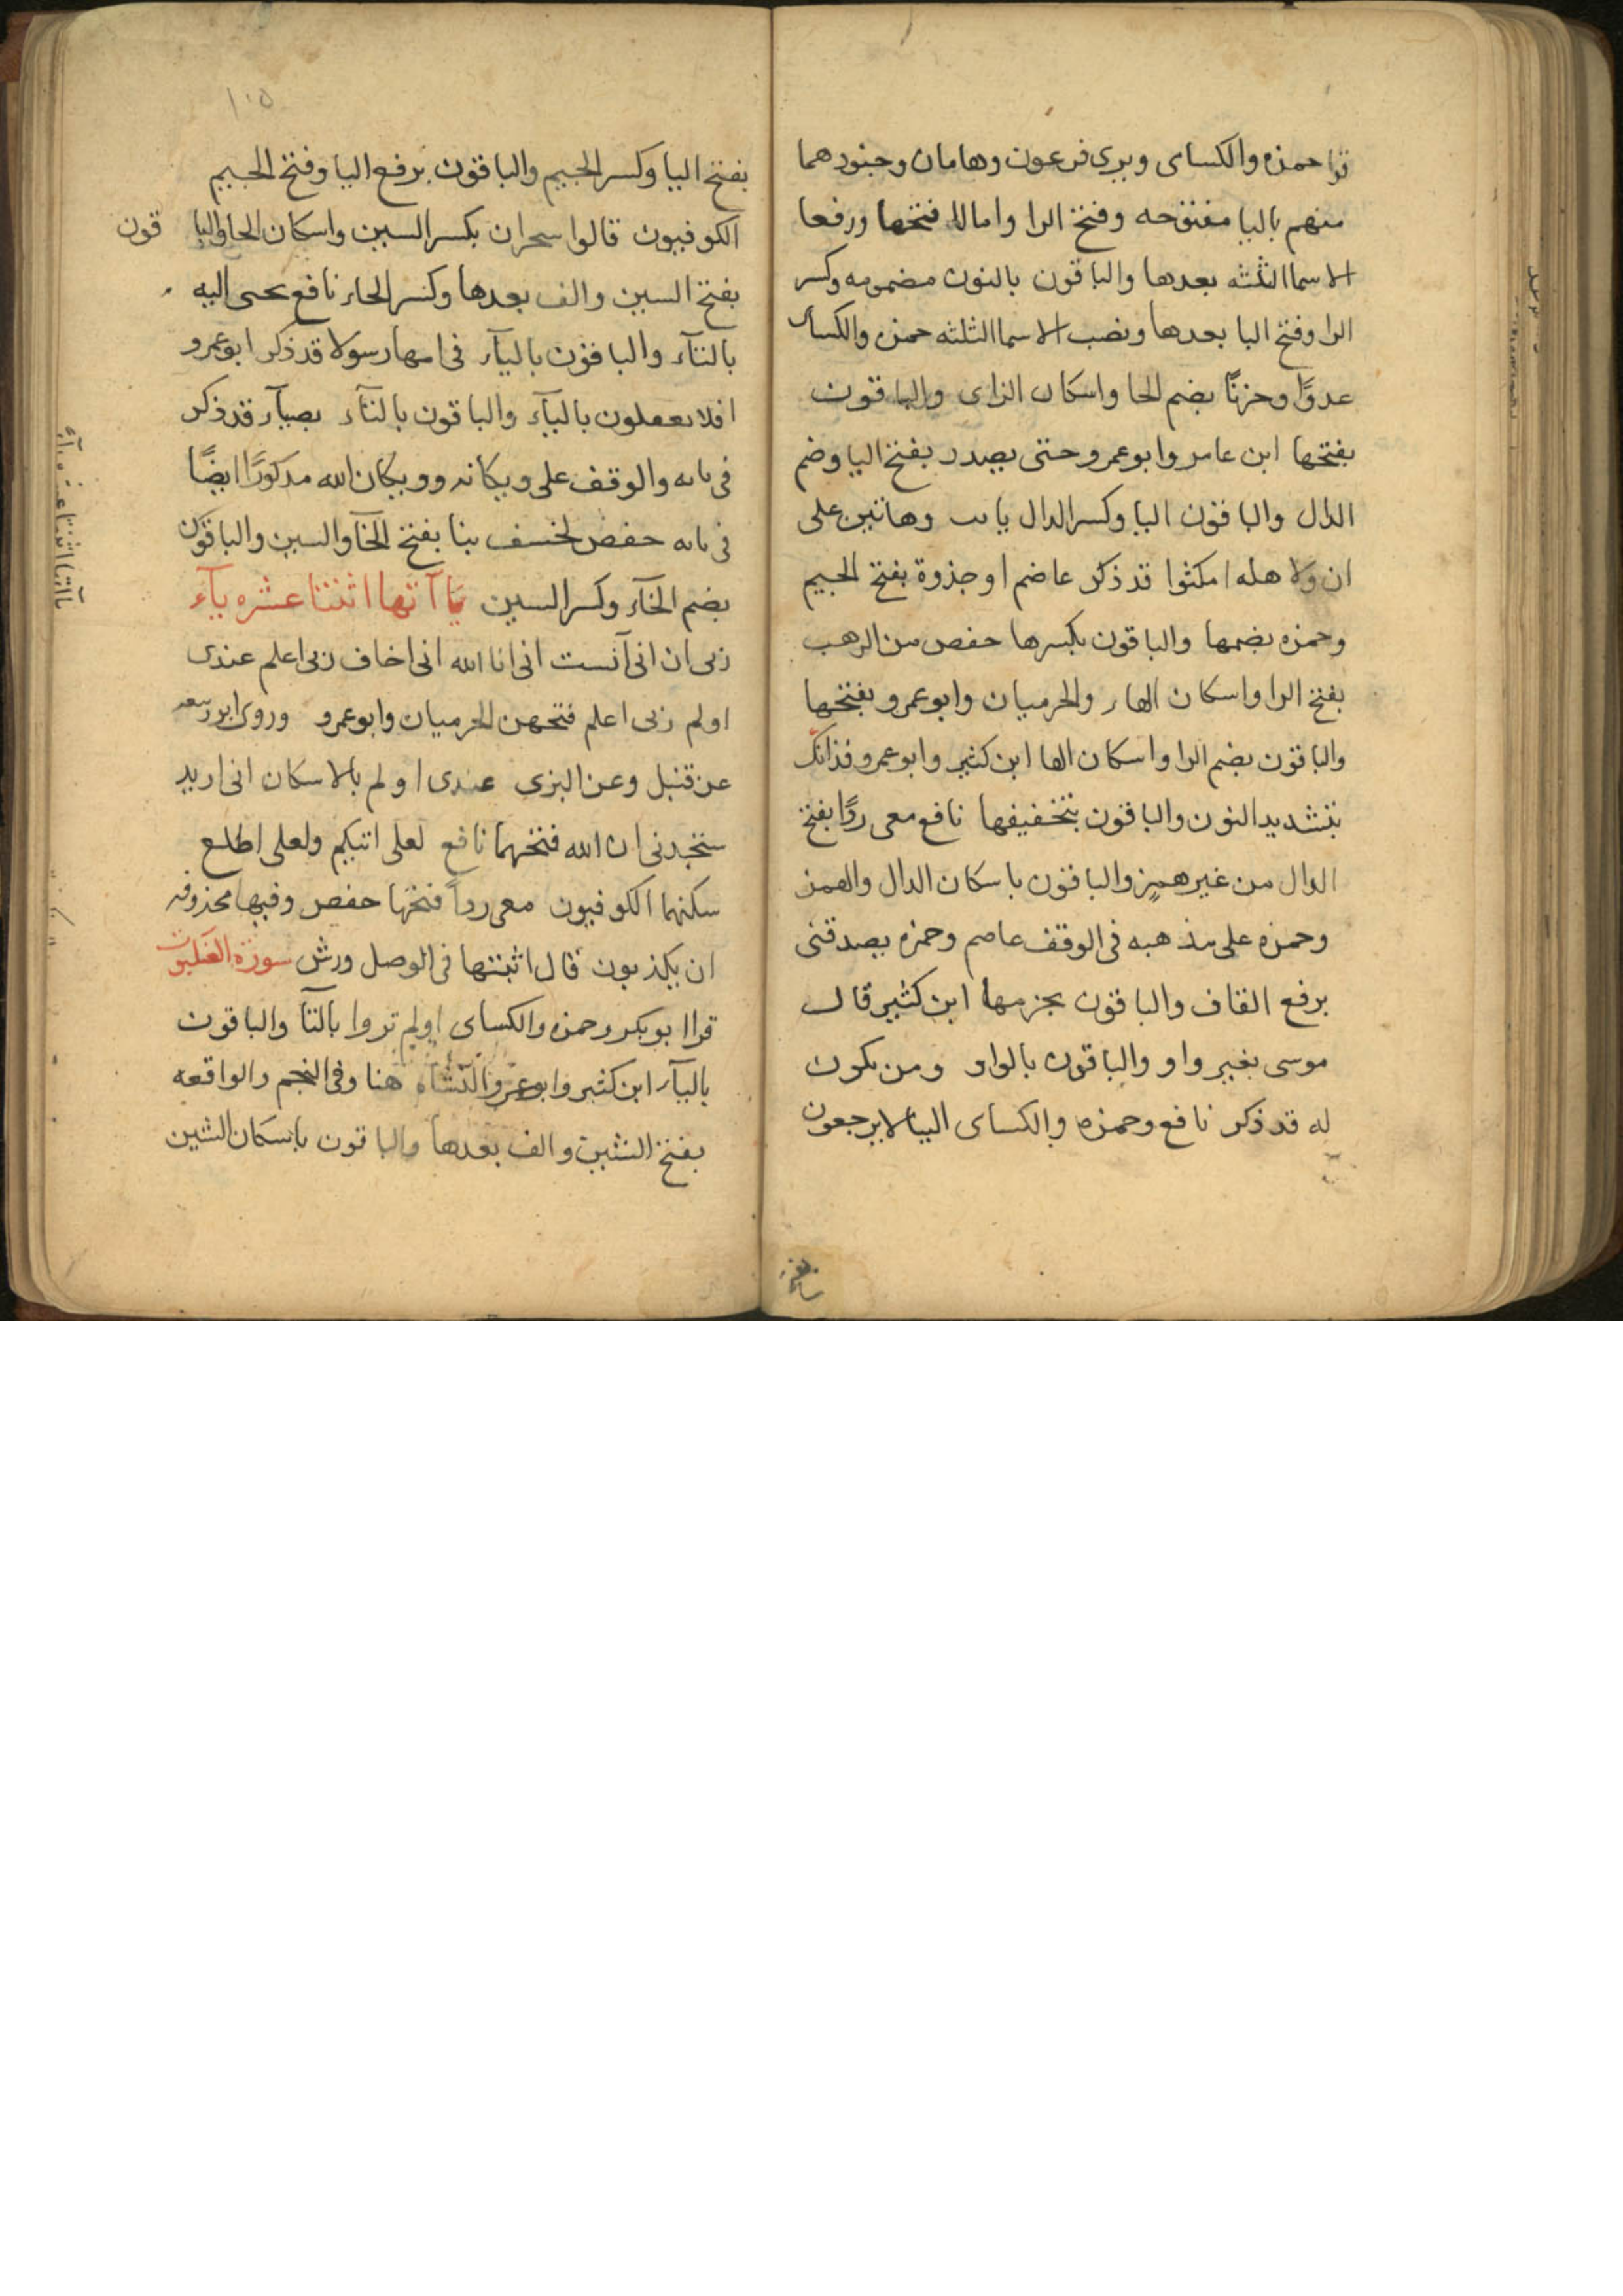 قرا حمزه والكساى ويرى فرعون وهامان وجنودهما
منهم باليا مفتوحه وفتح الرا وامالا فتحها ورفعا
الاسما الثلثه بعدها والباقون بالنون مضمومه وكسر
الرا وفتح اليا بعدها ونصب الاسما الثلثه حمزه والكساى
عدوًا وحزنًا بضم الحا واسكان الزاى والباقون
بفتحها ابن عامر وابو عمرو حتى يصدر بفتح اليا وضم
الدال والباقون اليا وكسر الدال يابت وهاتين على
ان ولا هله امكثوا قد ذكر عاصم اوجذوة بفتح الجيم
وحمزه بضمها والباقون بكسرها حفص من الرهب
بفتح الرا واسكان الهاء والحرميان وابو عمرو بفتحها
والباقون بضم الرا واسكان الها ابن كثير وابو عمرو فذانك
بتشديد النون والباقون بتخفيفها نافع معى ردًا بفتح
الدال من غير همز والباقون باسكان الدال والهمز
وحمزه على مذهبه فى الوقف عاصم وحمزه يصدقنى
برفع القاف والباقون بجزمها ابن كثير قال
موسى بغير واو والباقون بالواو ومن يكون
له قد ذكر نافع وحمزه والكساى الينا لا يرجعون
بفتح
١٠٥
بفتح اليا وكسر الجيم والباقون برفع اليا وفتح الجيم
الكوفيون قالوا سحران بكسر السين واسكان الحا والبا قون
بفتح السين والف بعدها وكسر الحاء نافع تجبى اليه
بالتآء والباقون باليآء فى امها رسولا قد ذكر ابو عمرو
افلا يعقلون باليآء والباقون بالتآء بضيآء قد ذكر
فى بابه والوقف على ويكانه وويكان الله مذكورًا ايضًا
فى بابه حفص لخسف بنا بفتح الخآ والسين والباقون
بضم الخآء وكسر السين يَا آتها اثنتا عشره يآء
ربى ان انى آنست انى انا الله انى اخاف ربى اعلم عندى
اولم ربى اعلم فتحهن الحرميان وابو عمرو وروى ابو ربيعه
عن قنبل وعن البزى عندى اولم بالاسكان انى اريد
ستجدنى ان الله فتحهما نافع لعلى اتيكم ولعلى اطلع
سكنهما الكوفيون معى ردأ فتحها حفص وفيها محذوفه
ان يكذبون قال اثبتها فى الوصل ورش سورة العنكبوت
قرا ابو بكر وحمزه والكساى اولم تروا بالتآ والباقون
باليآء ابن كثير وابو عمرو النشآة هنا وفى النجم والواقعه
بفتح الشين والف بعدها والباقون باسكان الشين